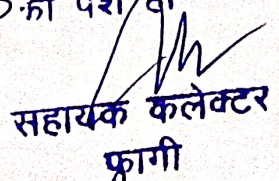 को पेश हो
सहायक कलेक्टर
फागी